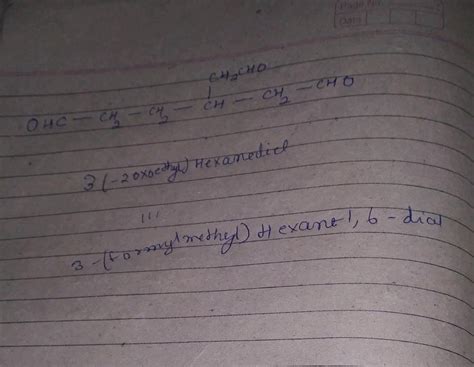 Page No.
Date
CH2CHO
OHC — CH2 — CH2 — CH — CH2 — CHO
3 (-2 oxoethyl) Hexanedial
111
3-(formylmethyl) Hexane-1, 6-dial